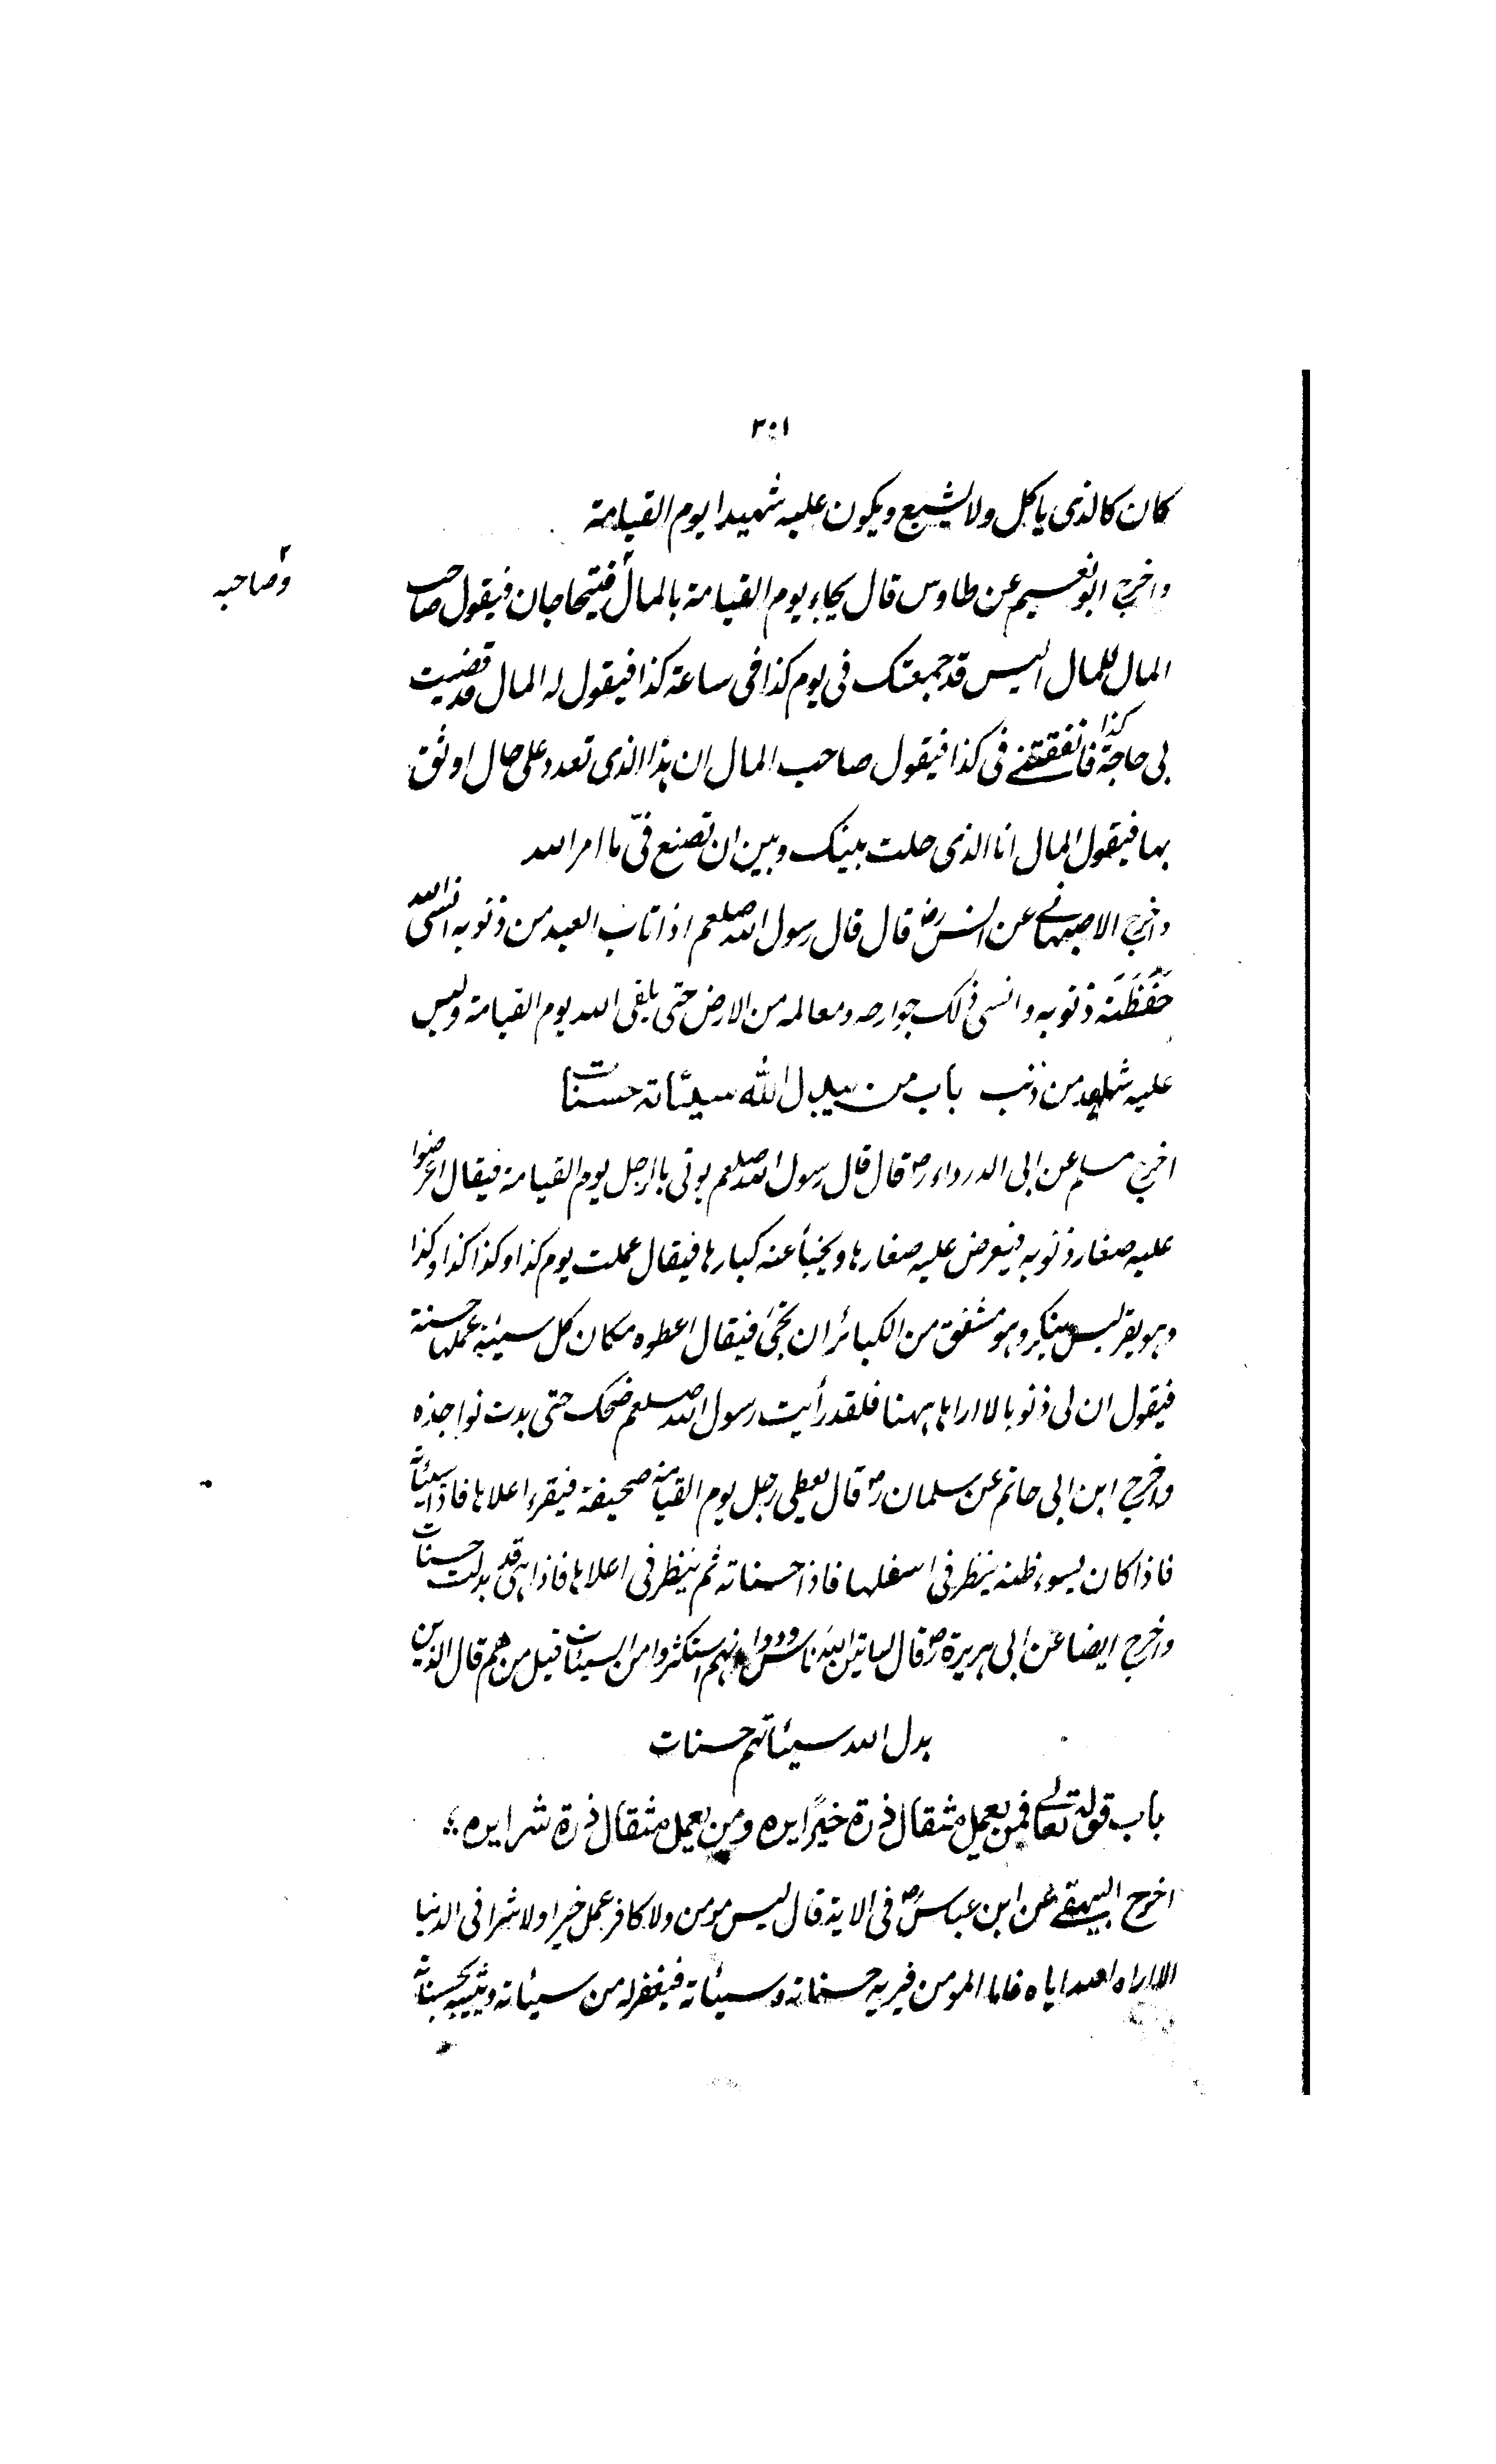 ٣٠١
كان كالذى ياكل ولا يشبع ويكون عليه شهيدا يوم القيامة
واخرج ابو نعيم عن طاوس قال يجاء يوم القيامة بالمال فيتحاجان فيقول صاحب
وصاحبه
المال للمال اليس قد جمعتك فى يوم كذا فى ساعة كذا فيقول له المال قد قضيت
بى حاجة كذا فانفقتنى فى كذا فيقول صاحب المال ان هذا الذى تعدد على حال اوثق
بها فيقول المال انا الذى حلت بينك وبين ان تصنع فىّ ما امر الله
واخرج الاصبهانى عن انس رض قال قال رسول الله صلعم اذا تاب العبد من ذنوبه انسى الله
حَفَظَتَه ذنوبه وانسى ذلك جوارحه ومعالمه من الارض حتى يلقى الله يوم القيامة وليس
عليه شاهد من ذنب باب من يبدل الله سيئاته حسنات
اخرج مسلم عن ابى الدرداء رض قال قال رسول الله صلعم يوتى بالرجل يوم القيامة فيقال اعرضوا
عليه صغار ذنوبه فيعرض عليه صغارها ويخبأ عنه كبارها فيقال عملت يوم كذا وكذا كذا وكذا
وهو يقر ليس ينكر وهو مشفق من الكبائر ان تجئ فيقال اعطوه مكان كل سيئة عملها حسنة
فيقول ان لى ذنوبا لا اراها ههنا فلقد رأيت رسول الله صلعم ضحك حتى بدت نواجذه
واخرج ابن ابى حاتم عن سلمان رض قال يعطى رجل يوم القيامة صحيفة فيقرء اعلاها فاذا سيئاته
فاذا كان يسوء ظنه ينظر فى اسفلها فاذا حسناته ثم ينظر فى اعلاها فاذا هى قد بدلت حسنات
واخرج ايضا عن ابى هريرة رض قال لياتين الله ناس ودوا انهم استكثروا من السيئات قيل من هم قال الذين
بدل الله سيئاتهم حسنات
باب قوله تعالى فمن يعمل مثقال ذرة خيرًا يره ومن يعمل مثقال ذرة شرا يره
اخرج البيهقى عن ابن عباس رض فى الاية قال ليس مومن ولا كافر عمل خيرا ولا شرا فى الدنيا
الا اراه الله اياه فاما المومن فيريه حسناته وسيئاته فيغفر له من سيئاته ويثيبه بحسناته